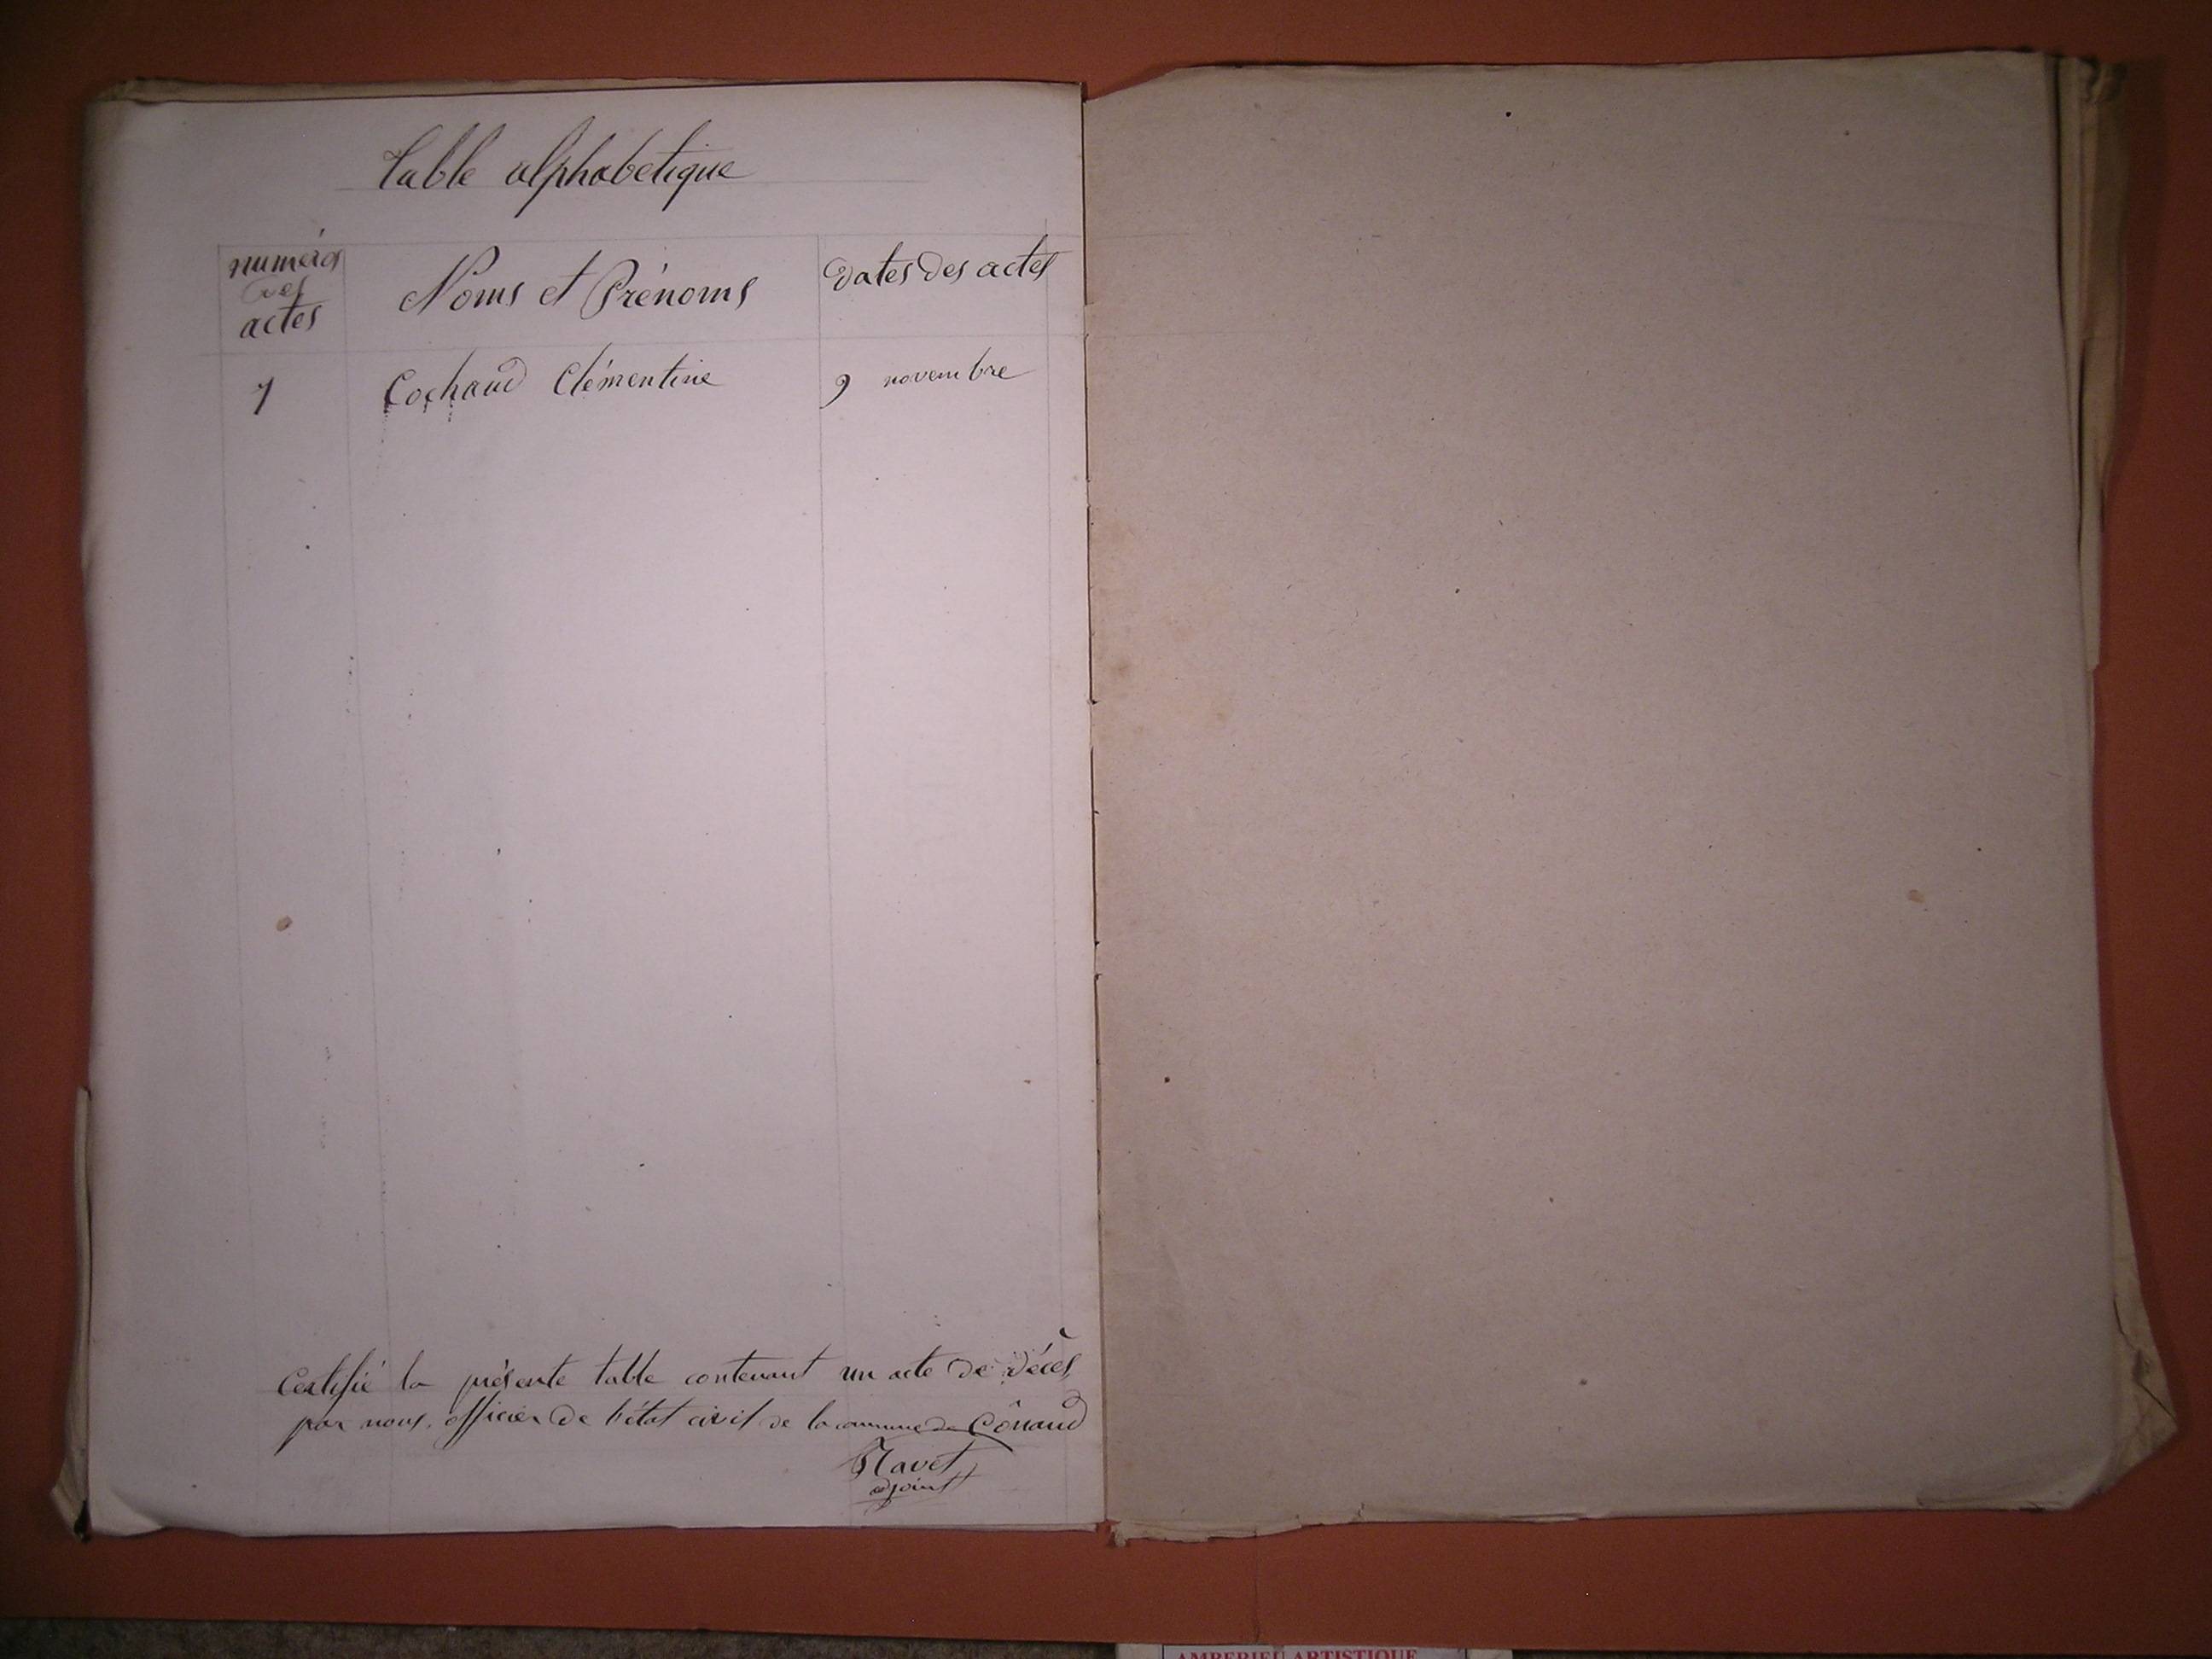 Table alphabetique
numéros des actes
Noms et Prénoms
Dates des actes
1 Cochaud Clémentine 9 novembre
Certifié la présente table contenant un acte de décès,
par nous, officier de l'état civil de la commune de Cônand
Navet
adjoint
AMBERIEU ARTISTIQUE